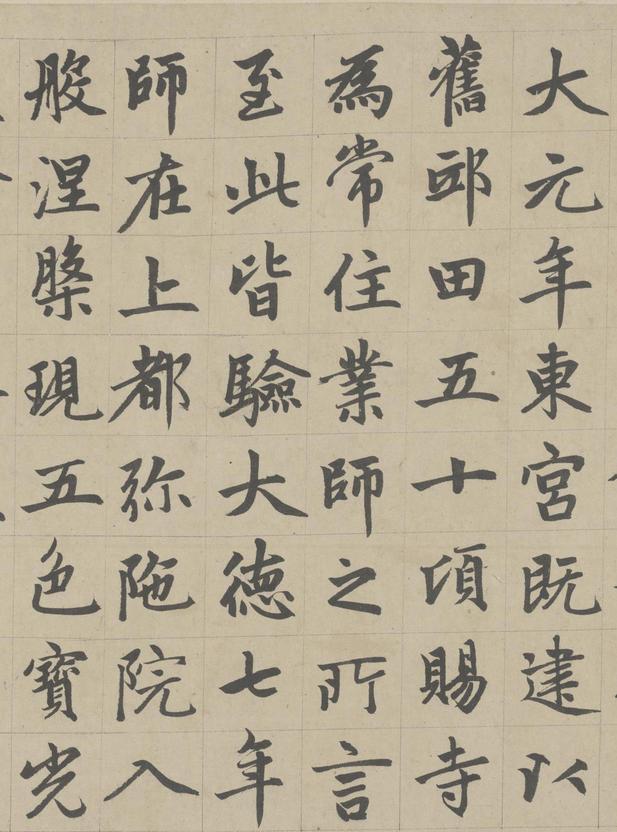 大元年東宮既建以
舊邸田五十頃賜寺
為常住業師之所言
至此皆驗大德七年
師在上都弥陁院入
般涅槃現五色寶光